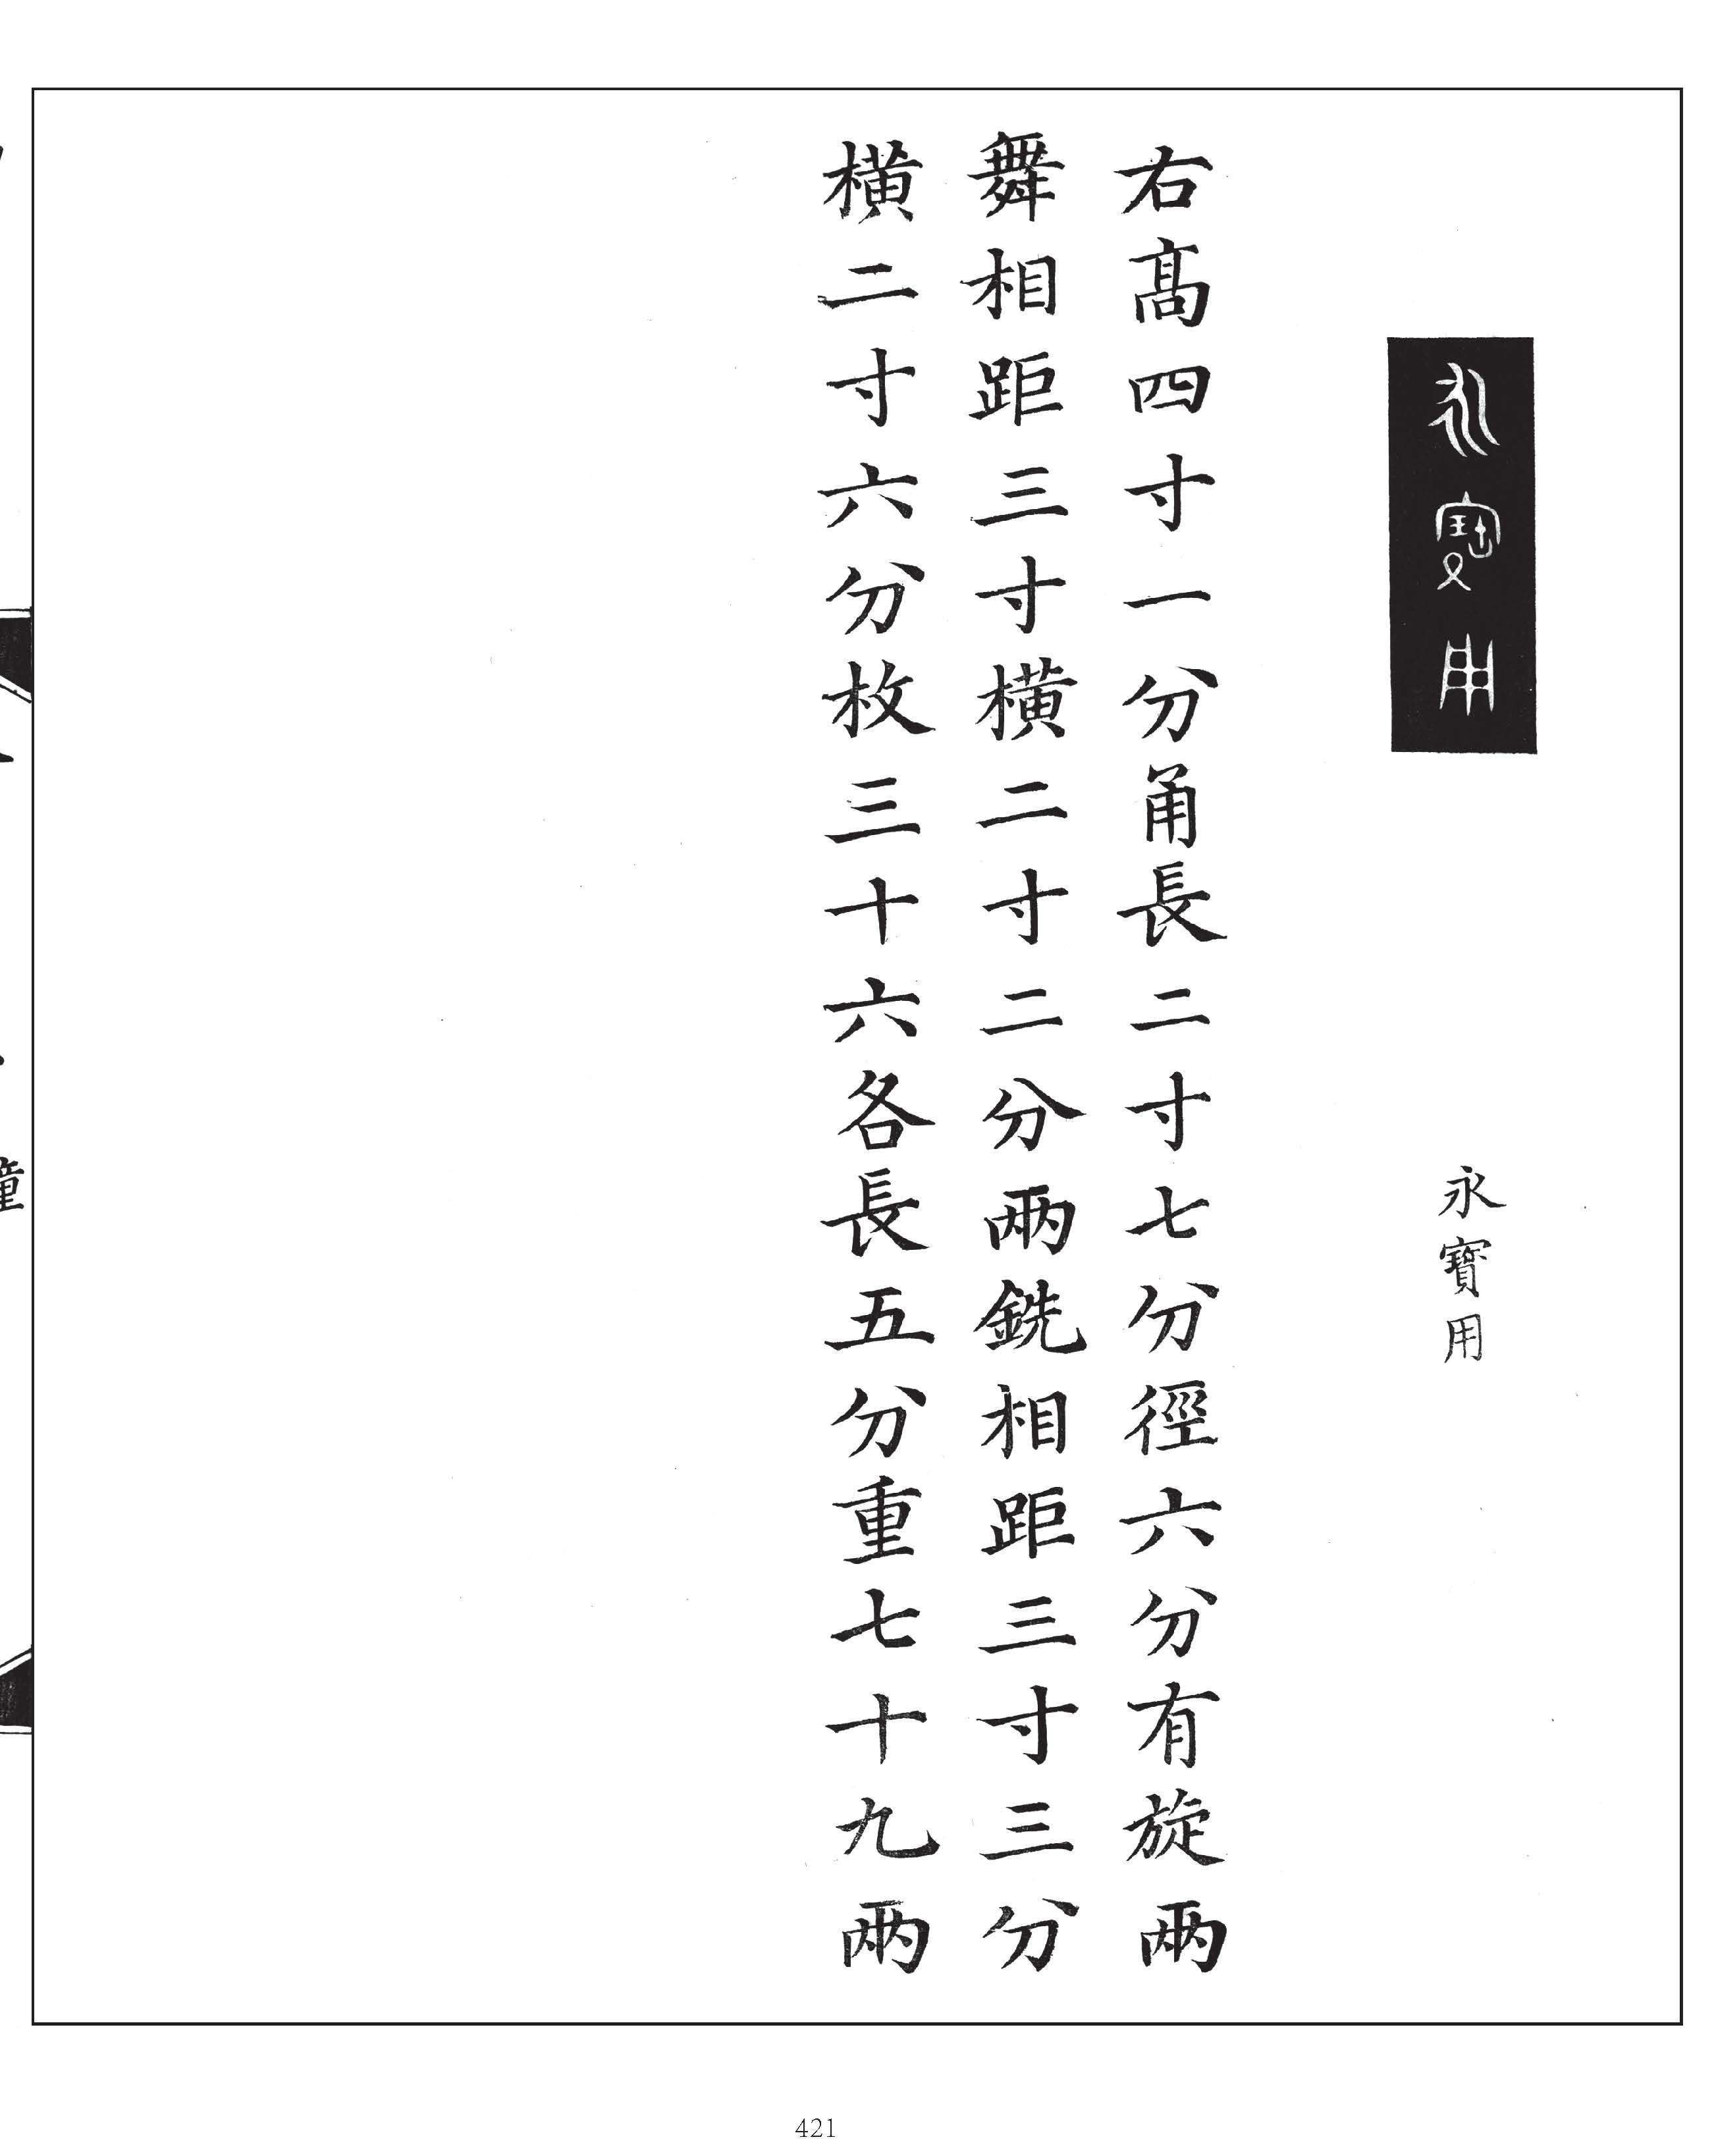 永寶用
永寶用
右高四寸一分甬長二寸七分徑六分有旋兩
舞相距三寸橫二寸二分兩銑相距三寸三分
橫二寸六分枚三十六各長五分重七十九兩
421